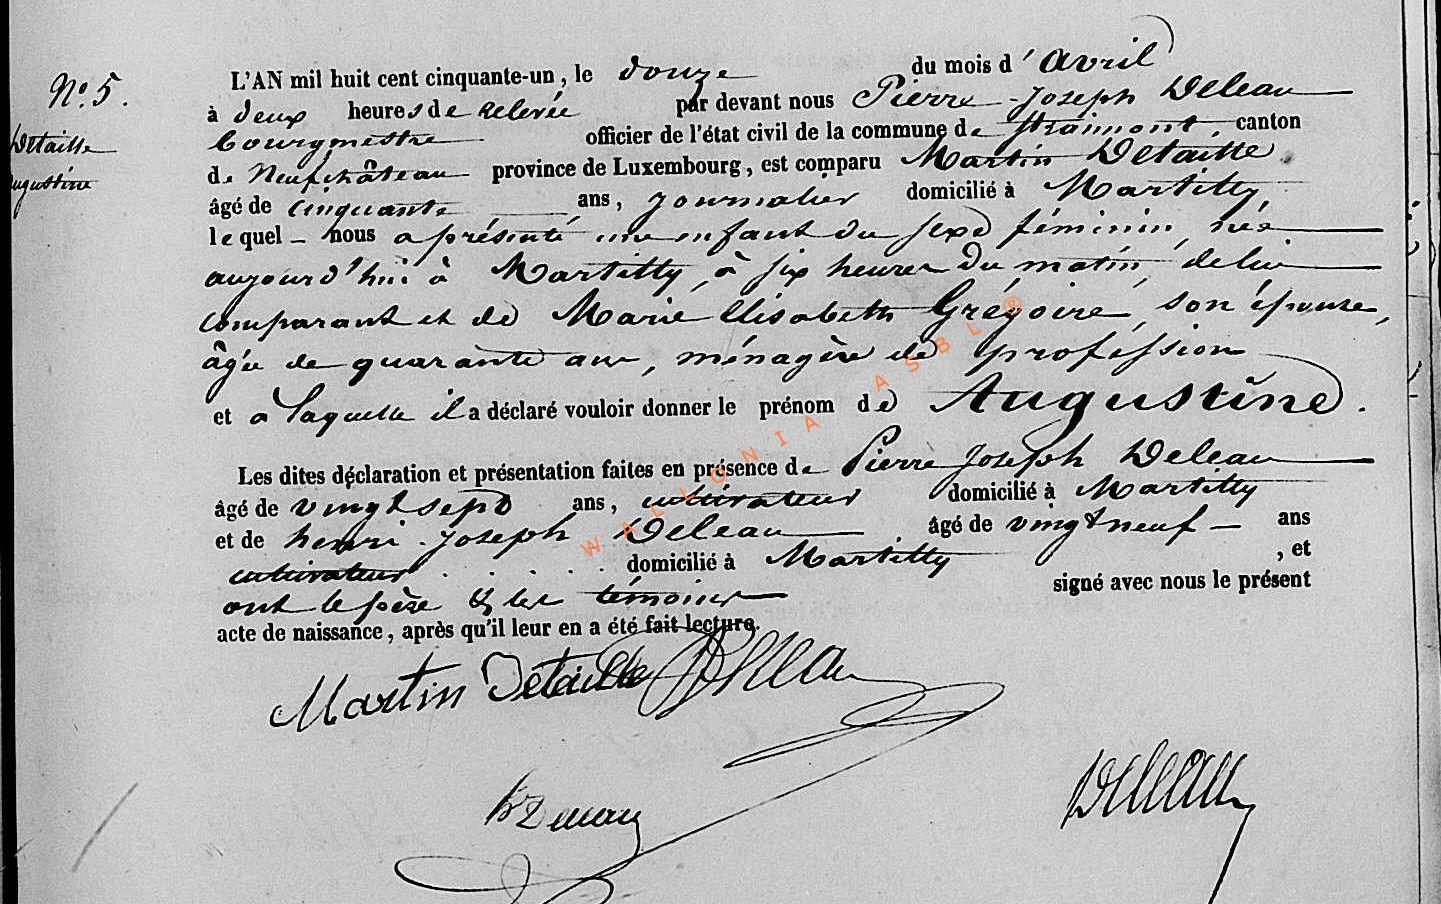 N.º 5.
Detaille
Augustine
L'AN mil huit cent cinquante-un, le douze du mois d'avril
à deux heures de relevée par devant nous Pierre-Joseph Deleau
bourgmestre officier de l'état civil de la commune de Straimont, canton
de Neufchâteau province de Luxembourg, est comparu Martin Detaille
âgé de cinquante ans, journalier domicilié à Martilly,
lequel nous a présenté un enfant du sexe féminin, née
aujourd'hui à Martilly, à six heures du matin, de lui
comparant et de Marie Elisabeth Grégoire, son épouse,
âgée de quarante ans, ménagère de profession
et à laquelle il a déclaré vouloir donner le prénom de Augustine.
Les dites déclaration et présentation faites en présence de Pierre Joseph Deleau
âgé de vingt sept ans, cultivateur domicilié à Martilly
et de henri-Joseph Deleau âgé de vingt neuf ans
cultivateur domicilié à Martilly, et
ont le père & les témoins signé avec nous le présent
acte de naissance, après qu'il leur en a été fait lecture.
Martin Detaille Deleau
Deleau
WALLONIA ASBL ®